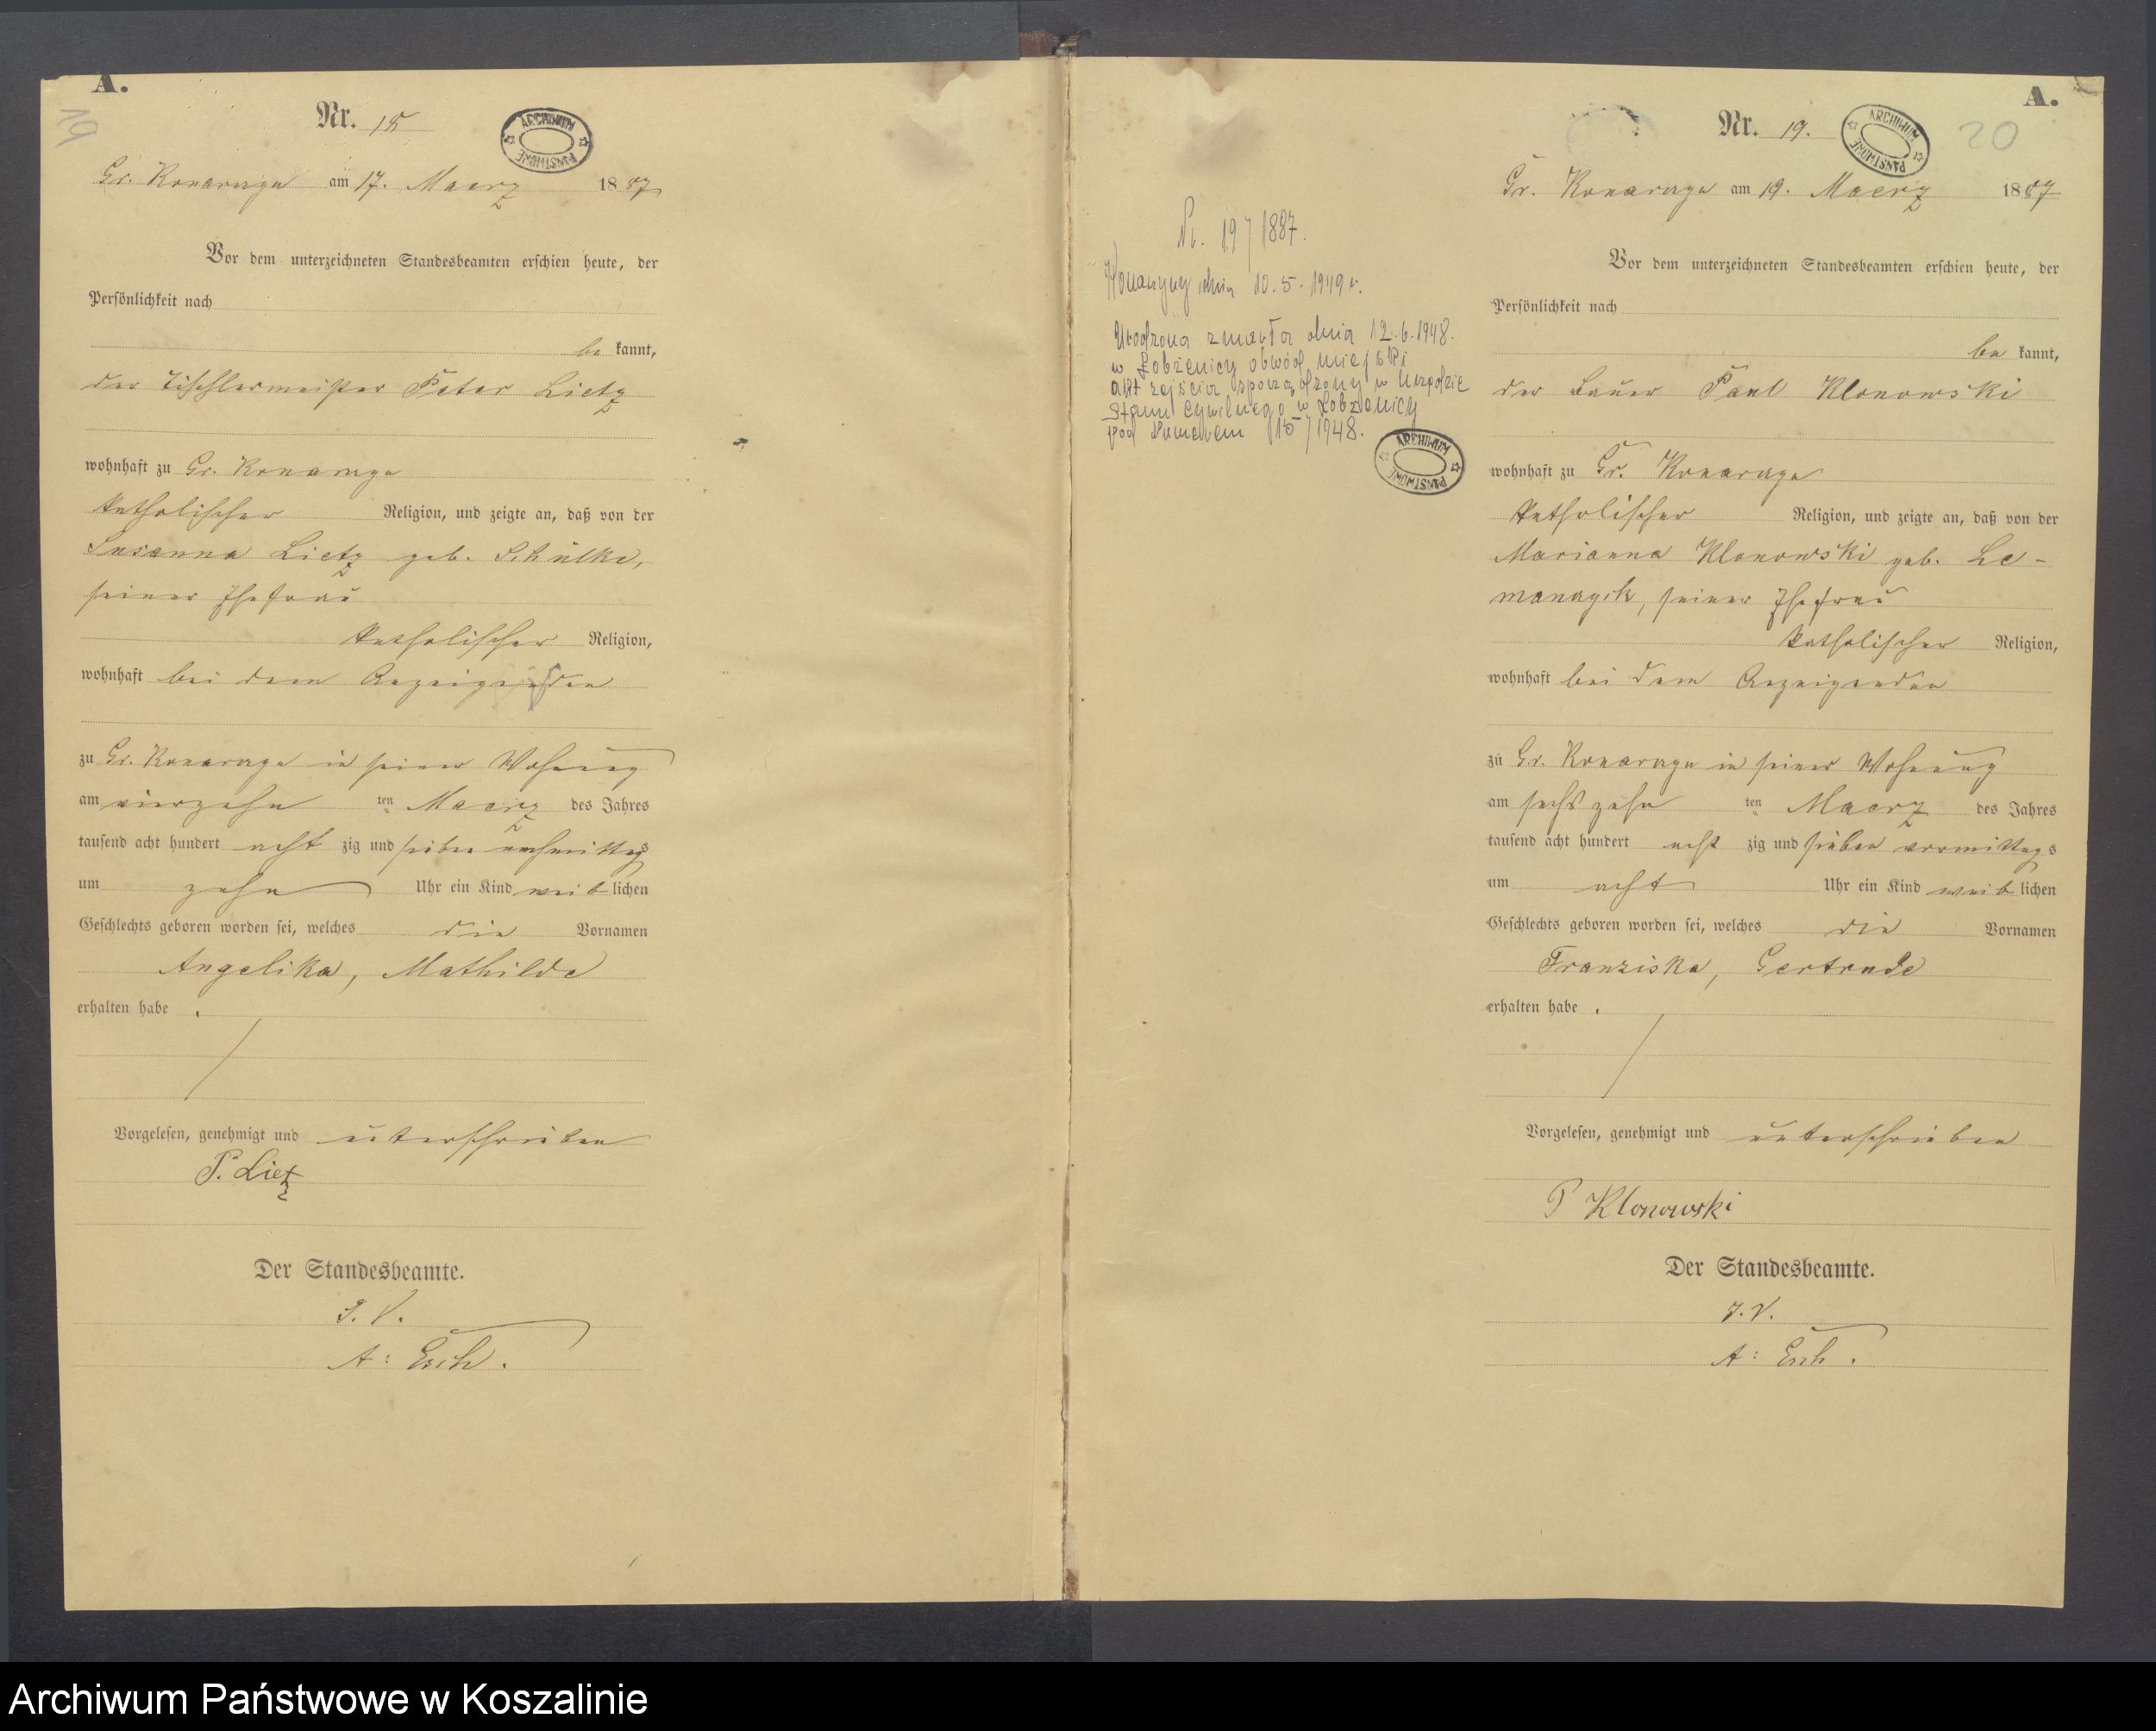 A.
19
Nr. 18
ARCHIWUM PAŃSTWOWE
Gr. Konarzyn am 17. Maerz 1887
Vor dem unterzeichneten Standesbeamten erschien heute, der
Persönlichkeit nach
be kannt,
der Tischlermeister Peter Lietz
wohnhaft zu Gr. Konarzyn
katholischer Religion, und zeigte an, daß von der
Susanna Lietz geb. Schülke,
seiner Ehefrau
katholischer Religion,
wohnhaft bei dem Anzeigenden
zu Gr. Konarzyn in seiner Wohnung
am vierzehn ten Maerz des Jahres
tausend acht hundert acht zig und sieben nachmittags
um zehn Uhr ein Kind weib lichen
Geschlechts geboren worden sei, welches die Vornamen
Angelika, Mathilde
erhalten habe.
Vorgelesen, genehmigt und unterschrieben
P. Lietz
Der Standesbeamte.
I. V.
A: Esch.
A.
20
Nr. 19.
ARCHIWUM PAŃSTWOWE
Gr. Konarzyn am 19. Maerz 1887
Vor dem unterzeichneten Standesbeamten erschien heute, der
Persönlichkeit nach
be kannt,
der Bauer Paul Klonowski
wohnhaft zu Gr. Konarzyn
katholischer Religion, und zeigte an, daß von der
Marianna Klonowski geb. Le-
manczik, seiner Ehefrau
katholischer Religion,
wohnhaft bei dem Anzeigenden
zu Gr. Konarzyn in seiner Wohnung
am sechszehn ten Maerz des Jahres
tausend acht hundert acht zig und sieben vormittags
um acht Uhr ein Kind weib lichen
Geschlechts geboren worden sei, welches die Vornamen
Franziska, Gertrude
erhalten habe.
Vorgelesen, genehmigt und unterschrieben
P Klonowski
Der Standesbeamte.
I. V.
A: Esch.
Nr. 19/1887.
Konarzyny dnia 10.5.1949 r.
Urodzona zmarła dnia 12.6.1948.
w Łobżenicy obwód miejski
akt zejścia sporządzony w Urzędzie
Stanu Cywilnego w Łobżenicy
pod Numerem 15/1948.
ARCHIWUM PAŃSTWOWE
Archiwum Państwowe w Koszalinie